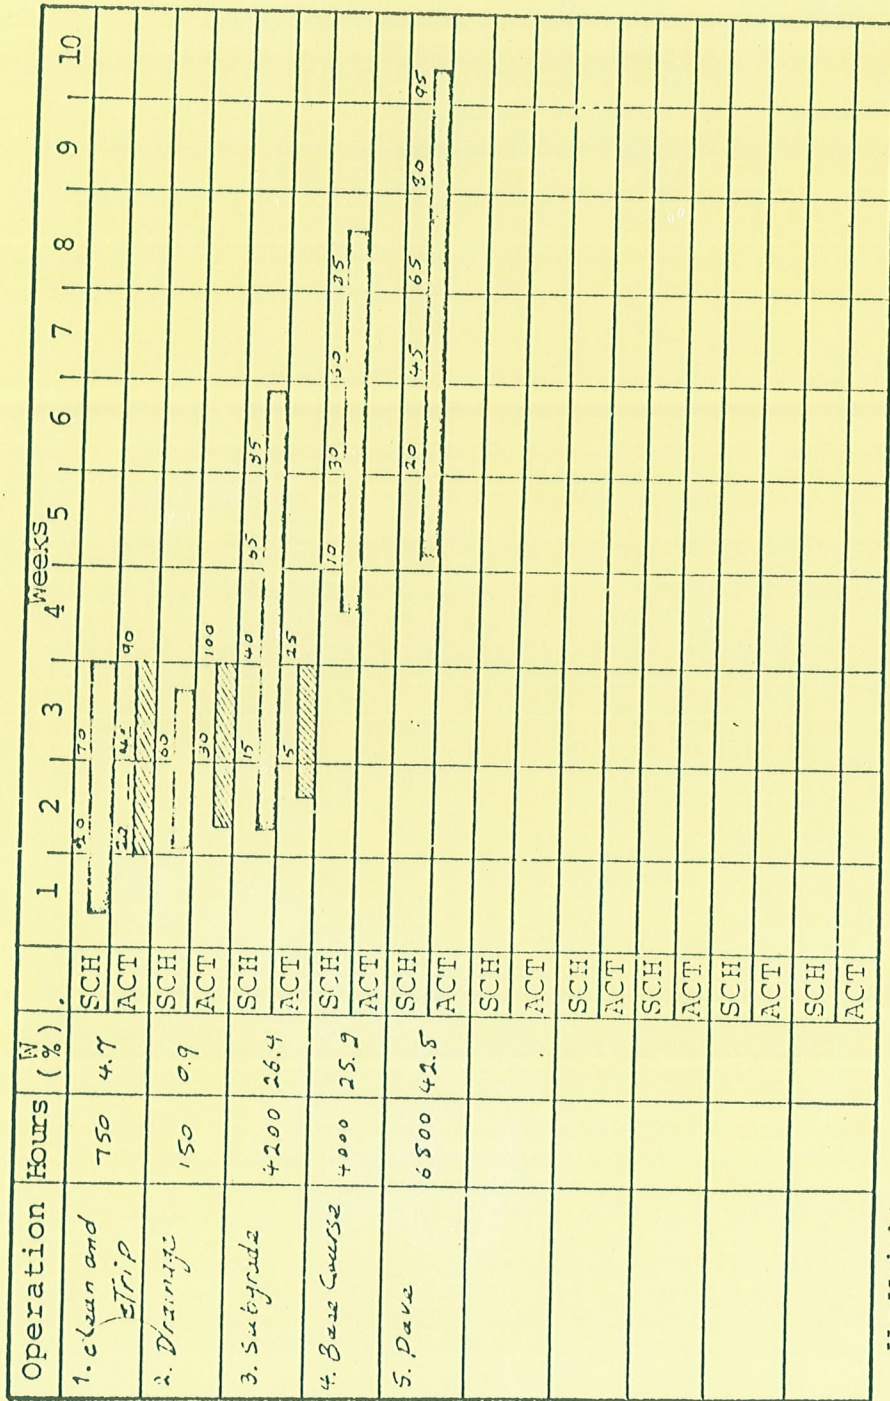 Operation Hours W (%) . Weeks
1 2 3 4 5 6 7 8 9 10
1. Clean and Strip 750 4.7
SCH 20 70
ACT 20 40 90
2. Drainage 150 0.9
SCH 60
ACT 30 100
3. Subgrade 4200 26.4
SCH 15 40 65 85
ACT 5 25
4. Base Course 4000 25.9
SCH 10 30 60 85
ACT
5. Pave 6800 42.5
SCH 20 45 65 80 95
ACT
SCH
ACT
SCH
ACT
SCH
ACT
SCH
ACT
SCH
ACT